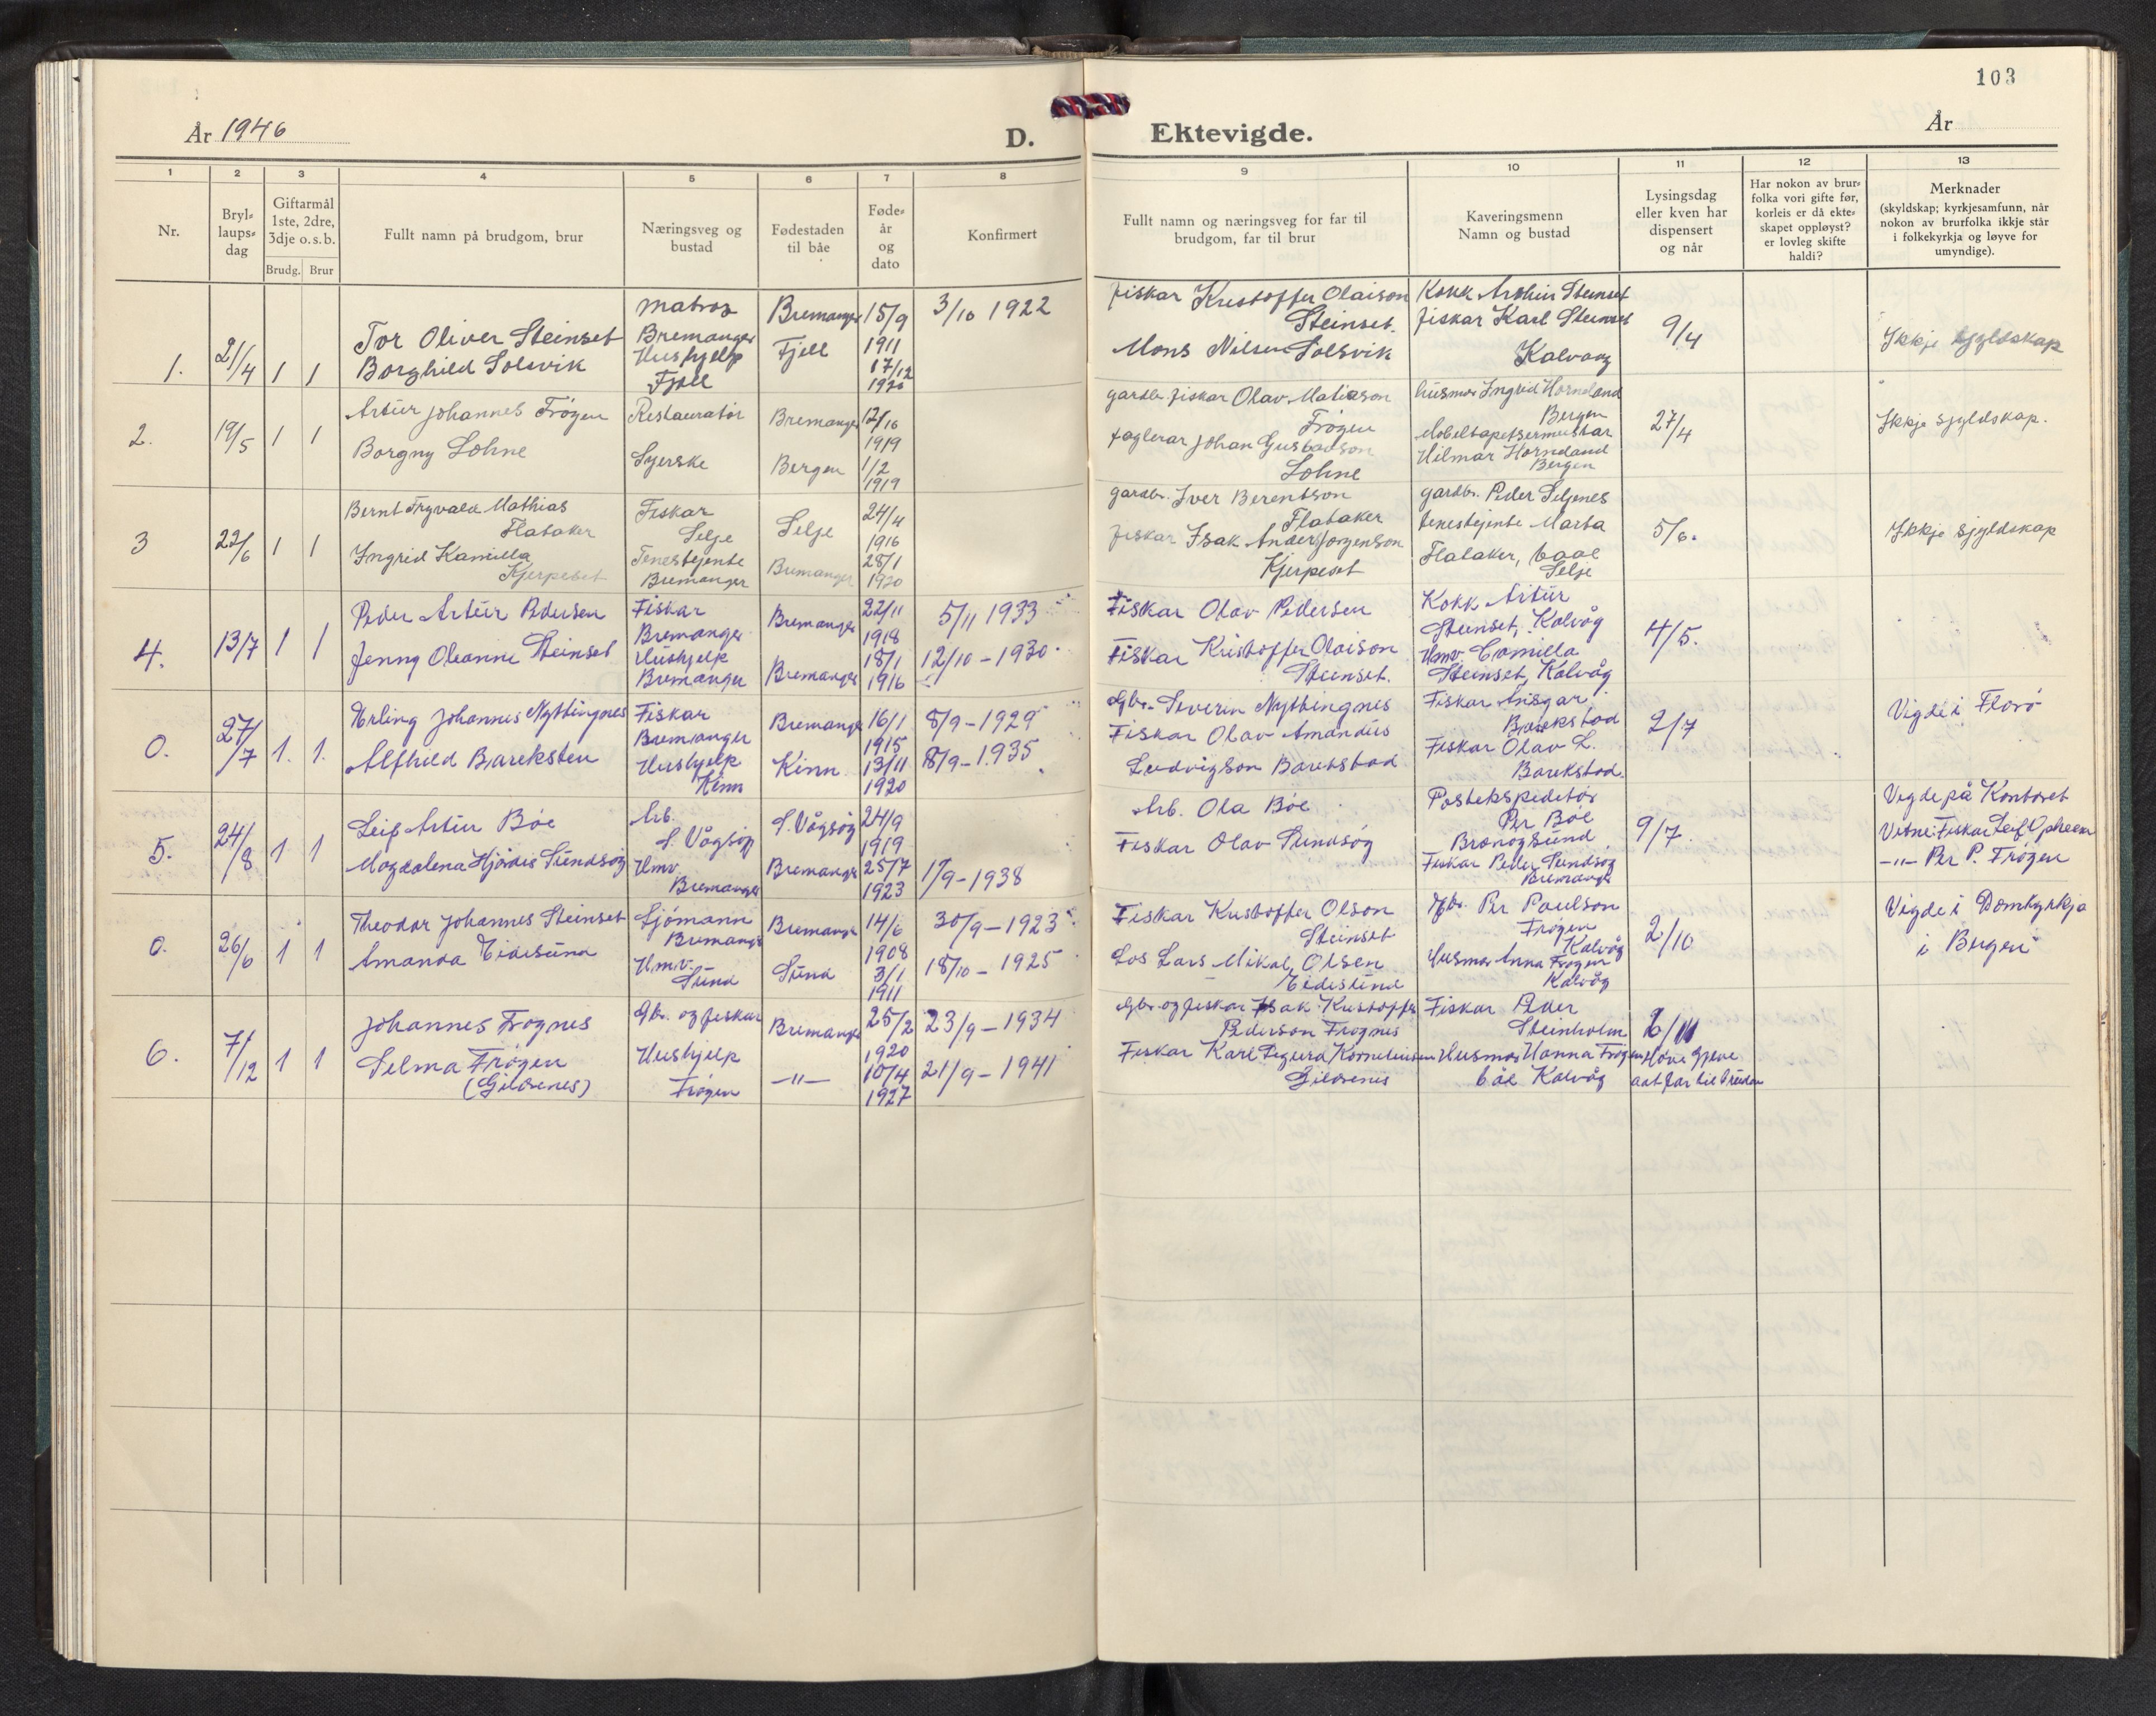 103
År 1946
D. Ektevigde.
År
1 2 3 4 5 6 7 8 9 10 11 12 13
Nr.
Bryl-
laups-
dag
Giftarmål
1ste, 2dre,
3dje o. s. b.
Brudg. Brur
Fullt namn på brudgom, brur
Næringsveg og
bustad
Fødestaden
til båe
Føde-
år
og
dato
Konfirmert
Fullt namn og næringsveg for far til
brudgom, far til brur
Kaveringsmenn
Namn og bustad
Lysingsdag
eller kven har
dispensert
og når
Har nokon av brur-
folka vori gifte før,
korleis er då ekte-
skapet oppløyst?
er lovleg skifte
haldi?
Merknader
(skyldskap; kyrkjesamfunn, når
nokon av brurfolka ikkje står
i folkekyrkja og løyve for
umyndige).
1. 21/4 1 1
Tor Oliver Steinset
Borghild Solsvik
Matros
Bremanger
Hushjelp
Fjell
Bremanger
Fjell
15/9
1911
17/12
1920
3/10 1922
Fiskar Kristoffer Olaison
Steinset.
Mons Nilsen Solsvik
Kokk Arthur Steinset
Fiskar Karl Steinset
Kalvaag
9/4
Ikkje skyldskap
2. 19/5 1 1
Artur Johannes Frøyen
Borgny Lohne
Restauratør
Syerske
Bremanger
Bergen
12/10
1919
1/2
1919
gardbr. fiskar Olav Matiason
Frøyen
faglerar Johan Gustavson
Lohne
husmor Ingrid Horneland
Bergen
Møbeltapetsermeistar
Hilmar Horneland
Bergen
27/4
Ikkje sjyldskap.
3 22/6 1 1
Bernt Tryvald Mathias
Flataker
Ingrid Kamilla
Kjerpeset
Fiskar
Selje
Tenestejente
Bremanger
Selje
Bremanger
24/4
1916
28/1
1920
gardbr. Iver Berentson
Flataker
fiskar Isak Anders Jørgenson
Kjerpeset
gardbr. Peder Seljenes
tenestejente Marta
Flataker, baae
Selje
5/6.
Ikkje sjyldskap
4. 13/7 1 1
Peder Artur Pedersen
Jenny Oleanne Steinset
Fiskar
Bremanger
Hushjelp
Bremanger
Bremanger
Bremanger
22/11
1918
18/1
1916
5/11 1933
12/10 - 1930.
Fiskar Olav Pedersen
Fiskar Kristoffer Olaison
Steinset.
Kokk Artur
Steinset, Kalvåg
Hmv. Camilla
Steinset, Kalvåg
4/5.
0. 27/7 1. 1.
Erling Johannes Nyttingnes
Alfhild Bareksten
Fiskar
Bremanger
Hushjelp
Kinn
Bremanger
Kinn
16/1
1915
13/11
1920
8/9 - 1929
8/9 - 1935
Gbr. Severin Nyttingnes
Fiskar Olav Amandus
Ludvigson Barekstad
Fiskar Ansgar
Barekstad
Fiskar Olav L.
Barekstad.
2/7
Vigde i Florø
5. 24/8 1 1
Leif Artur Bøe
Magdalena Hjørdis Sundsøy
Arb.
S. Vågsøy
Hmv.
Bremanger
S. Vågsøy
Bremanger
24/9
1919
25/7
1923
1/9 - 1938
Arb. Ola Bøe
Fiskar Olav Sundsøy
Postekspeditør
Per Bøe
Brønnøysund
Fiskar Peder Sundsøy
Bremanger
9/7
Vigde på Kontoret
Vitne: Fiskar Leif
-"- Per P. Frøyen
0. 26/6 1 1
Theodor Johannes Steinset
Amanda Eidesund
Sjømann
Bremanger
Hmv.
Sund
Bremanger
Sund
14/6
1908
3/1
1911
30/9 - 1923
18/10 - 1925
Fiskar Kristoffer Olson
Steinset
Los Lars Mikal Olsen
Eidesund
Gbr. Per Paulson
Frøyen
Kalvåg
Husmor Anna Frøyen
Kalvåg
2/10
Vigde i Domkyrkja
i Bergen
6. 7/12 1 1
Johannes Frøynes
Selma Frøyen
(Gildrenes)
Gbr. og fiskar
Hushjelp
Frøyen
Bremanger
-"-
25/2
1920
10/4
1927
23/9 - 1934
21/9 - 1941
Gbr. og fiskar Isak Kristoffer
Pederson Frøynes
Fiskar Karl Sigurd Korneliusen
Gildrenes
Fiskar Peder
Steinholm
Husmor Hanna Frøyen
båe Kalvåg